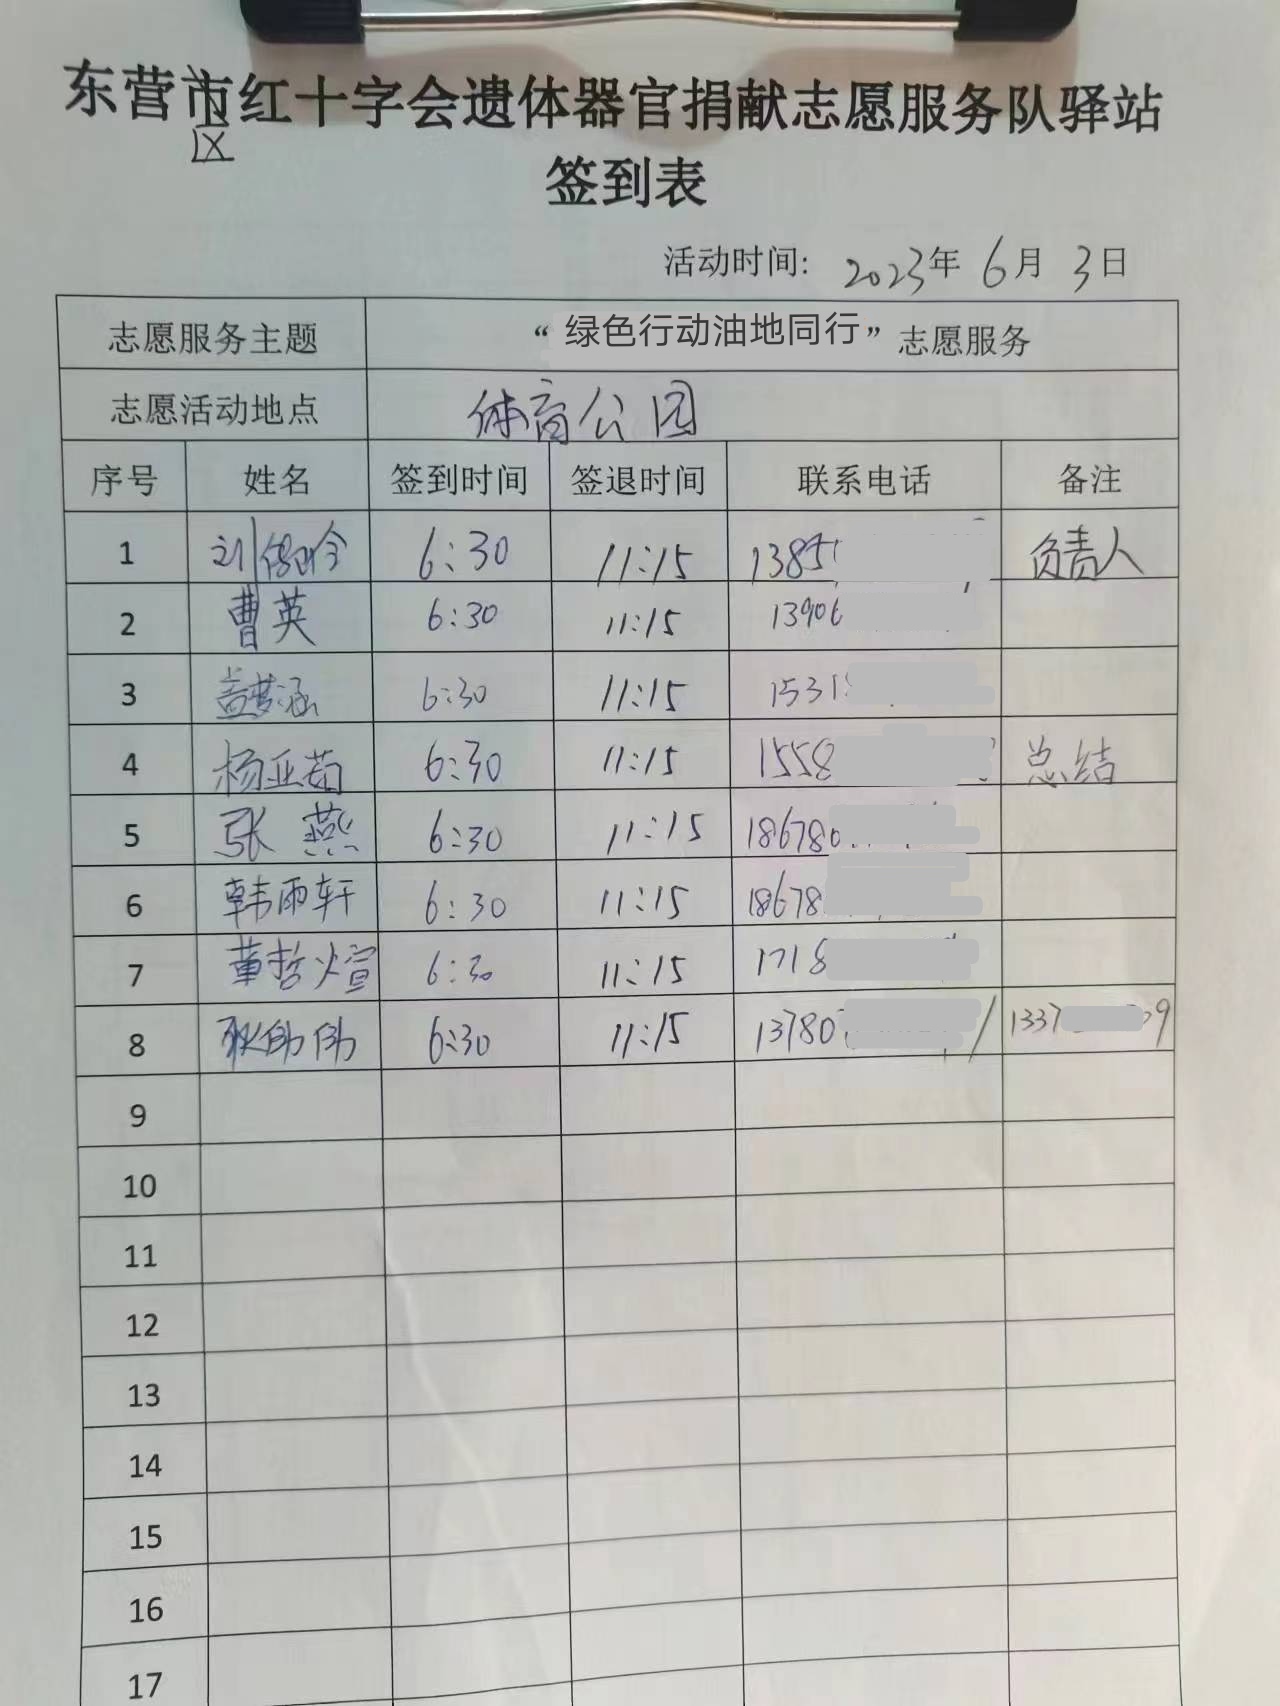 东营市红十字会遗体器官捐献志愿服务队驿站
区
签到表
活动时间: 2023年 6月 3日
志愿服务主题 “绿色行动油地同行”志愿服务
志愿活动地点 体育公园
序号 姓名 签到时间 签退时间 联系电话 备注
1 6:30 11:15 1385 负责人
2 曹英 6:30 11:15 13906
3 盖梦涵 6:30 11:15 1531
4 杨亚茹 6:30 11:15 1558 总结
5 张燕 6:30 11:15 186780
6 韩雨轩 6:30 11:15 18678
7 董哲煊 6:30 11:15 1718
8 6:30 11:15 13780 / 1337 39
9
10
11
12
13
14
15
16
17